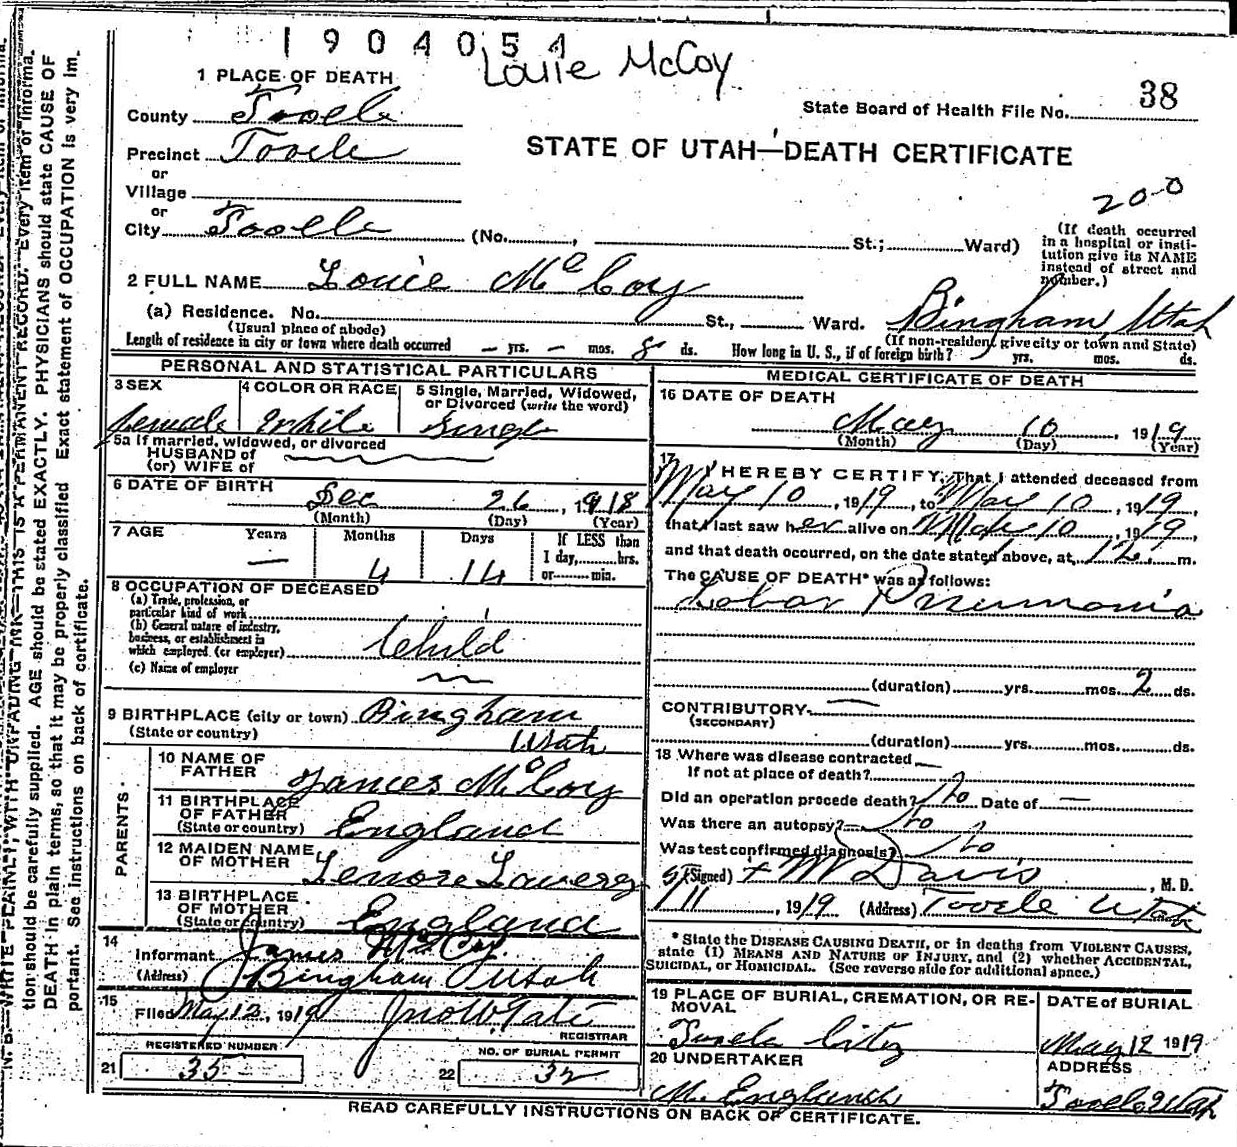 1904054
Louie McCoy
1 PLACE OF DEATH
County Tooele
State Board of Health File No. 38
Precinct Tooele
STATE OF UTAH—DEATH CERTIFICATE
or
Village
or
City Tooele (No. , St.; Ward)
20-0
(If death occurred in a hospital or institution give its NAME instead of street and number.)
2 FULL NAME Louie McCoy
(a) Residence. No. St., Ward. Bingham Utah
(Usual place of abode) (If non-resident give city or town and State)
Length of residence in city or town where death occurred – yrs. – mos. 8 ds. How long in U. S., if of foreign birth? yrs. mos. ds.
PERSONAL AND STATISTICAL PARTICULARS
3 SEX 4 COLOR OR RACE 5 Single, Married, Widowed, or Divorced (write the word)
female White Single
5a If married, widowed, or divorced
HUSBAND of
(or) WIFE of
6 DATE OF BIRTH Dec 26, 1918
(Month) (Day) (Year)
7 AGE Years Months Days If LESS than
1 day, hrs.
— 4 14 or min.
8 OCCUPATION OF DECEASED
(a) Trade, profession, or
particular kind of work
(b) General nature of industry,
business, or establishment in
which employed (or employer) Child
(c) Name of employer
9 BIRTHPLACE (city or town) Bingham
(State or country) Utah
PARENTS
10 NAME OF
FATHER James McCoy
11 BIRTHPLACE
OF FATHER
(State or country) England
12 MAIDEN NAME
OF MOTHER Lenore
13 BIRTHPLACE
OF MOTHER
(State or country) England
14
Informant James McCoy
(Address) Bingham Utah
15
Filed May 12, 1919 Jno W. Tate
REGISTRAR
REGISTERED NUMBER NO. OF BURIAL PERMIT
21 35 22 32
MEDICAL CERTIFICATE OF DEATH
16 DATE OF DEATH
May 10, 1919
(Month) (Day) (Year)
17 I HEREBY CERTIFY, That I attended deceased from
May 10, 1919, to May 10, 1919,
that I last saw her alive on May 10, 1919,
and that death occurred, on the date stated above, at 12 m.
The CAUSE OF DEATH* was as follows:
Lobar Pneumonia
(duration) yrs. mos. 2 ds.
CONTRIBUTORY —
(SECONDARY)
(duration) yrs. mos. ds.
18 Where was disease contracted
If not at place of death? —
Did an operation precede death? No Date of —
Was there an autopsy? No
Was test confirmed diagnosis? No
(Signed) M Davis, M. D.
5/11, 1919 (Address) Tooele Utah
* State the DISEASE CAUSING DEATH, or in deaths from VIOLENT CAUSES,
state (1) MEANS AND NATURE OF INJURY, and (2) whether ACCIDENTAL,
SUICIDAL, or HOMICIDAL. (See reverse side for additional space.)
19 PLACE OF BURIAL, CREMATION, OR REMOVAL DATE of BURIAL
Tooele City May 12 1919
20 UNDERTAKER ADDRESS
M. Englund Tooele Utah
READ CAREFULLY INSTRUCTIONS ON BACK OF CERTIFICATE.
N. B.—WRITE PLAINLY, WITH UNFADING INK—THIS IS A PERMANENT RECORD. Every item of informa-
tion should be carefully supplied. AGE should be stated EXACTLY. PHYSICIANS should state CAUSE OF
DEATH in plain terms, so that it may be properly classified. Exact statement of OCCUPATION is very im-
portant. See instructions on back of certificate.